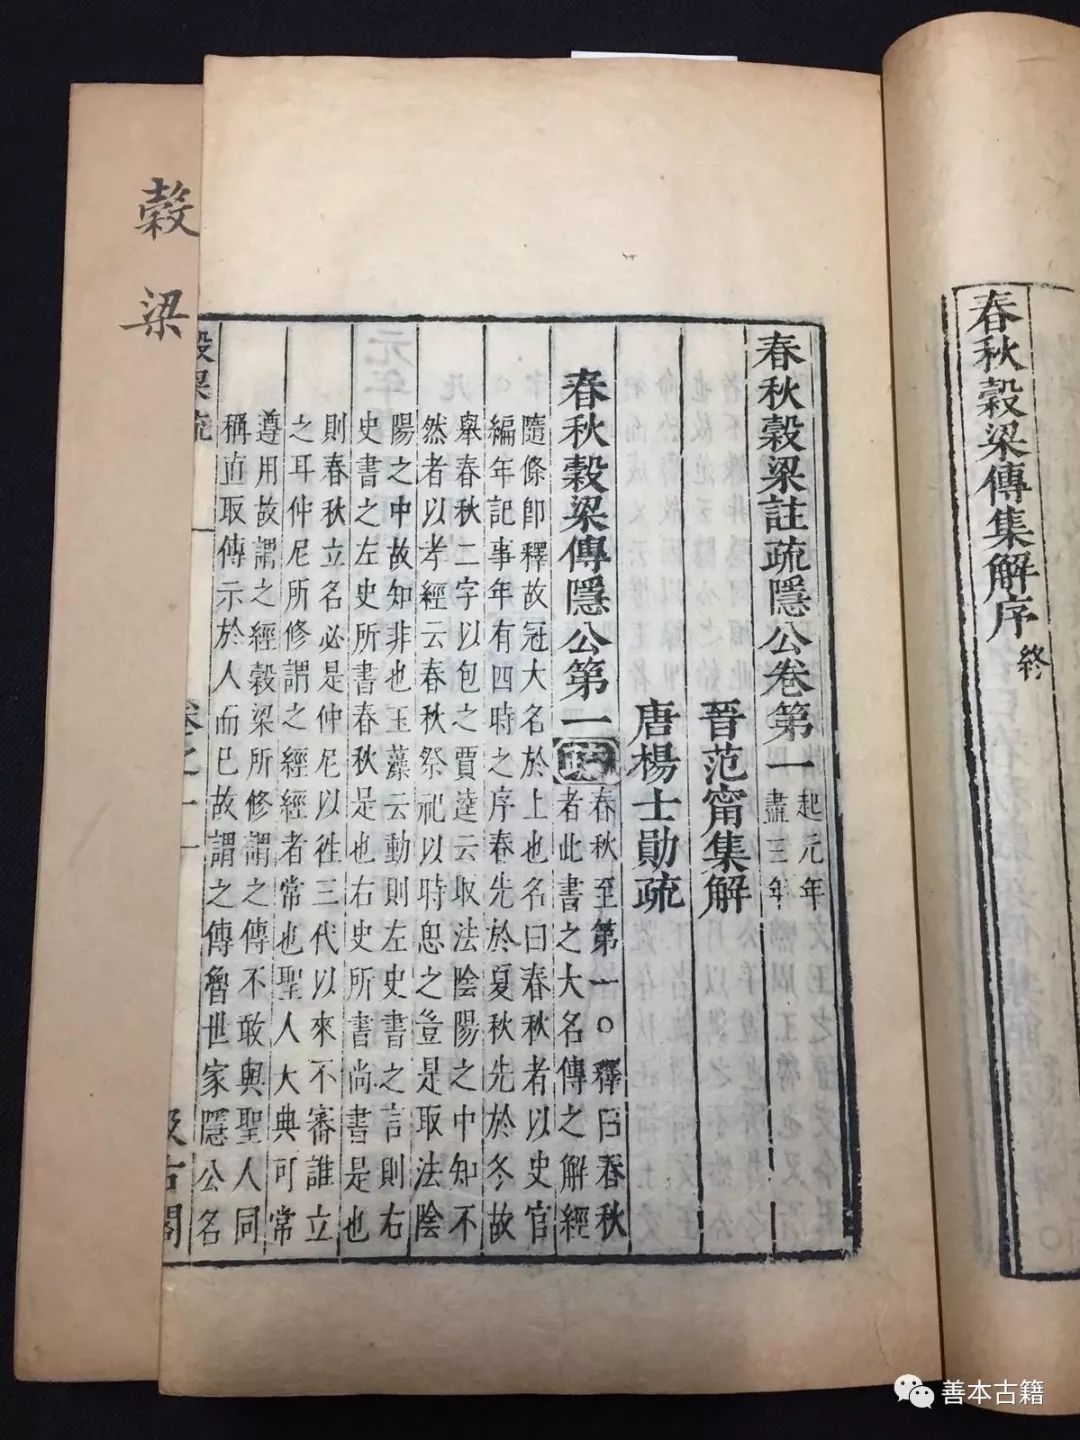 春秋穀梁傳集解序終
春秋穀梁註疏隱公卷第一
起元年
盡三年
晉范甯集解
唐楊士勛疏
春秋穀梁傳隱公第一疏
春秋至第一○釋曰春秋
者此書之大名傳之解經
隨條即釋故冠大名於上也名曰春秋者以史官
編年記事年有四時之序春先於夏秋先於冬故
舉春秋二字以包之賈逵云取法陰陽之中知不
然者以孝經云春秋祭祀以時思之豈是取法陰
陽之中故知非也玉藻云動則左史書之言則右
史書之左史所書春秋是也右史所書尚書是也
則春秋立名必是仲尼以徃三代以來不審誰立
之耳仲尼所修謂之經經者常也聖人大典可常
遵用故謂之經穀梁所修謂之傳不敢與聖人同
稱直取傳示於人而已故謂之傳魯世家隱公名
穀梁疏
卷之一
一
汲古閣
穀梁
善本古籍